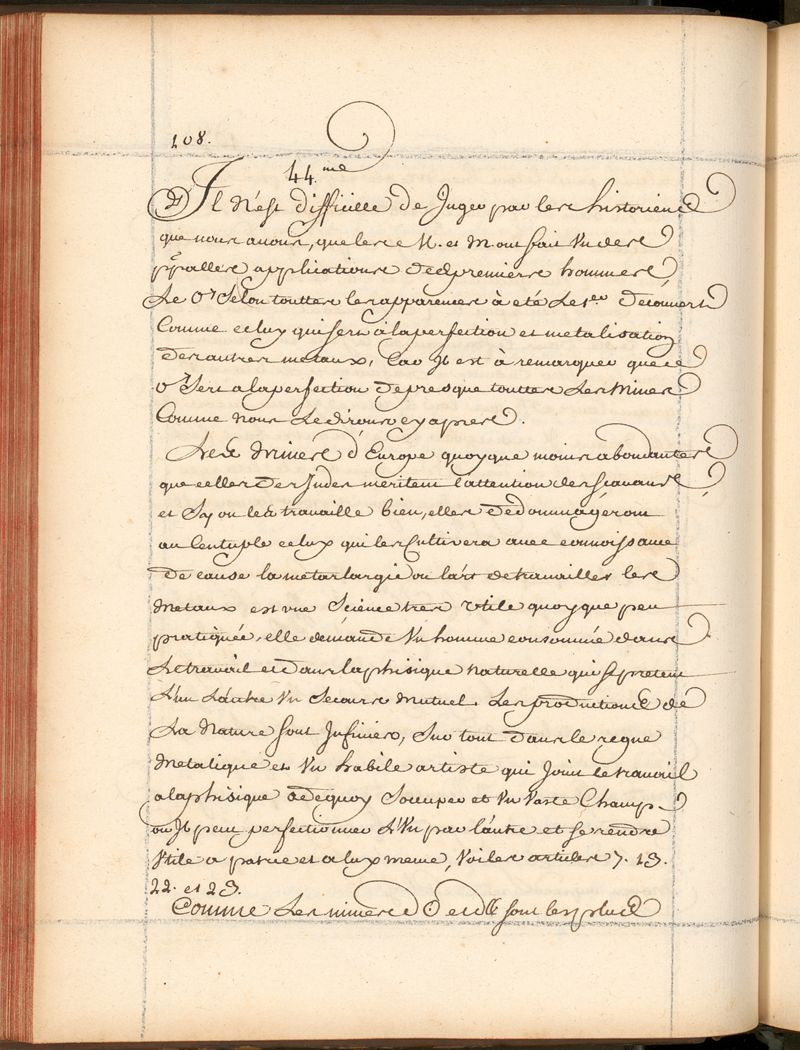 108.
44.me
Il n'est difficille de Juger par les historiens
que nous avons, que les M. et M. ont fait Un des
ppalles applications des premiers hommes
Le Or Selon touttes les apparences à eté Le 1.er Découvert
Comme celuy qui sert a la perfection et metalisation
des autres metaux, Car Jl est à remarquer que ce
Or Sert a la perfection de presque touttes Les Mines
Comme nous Le dirons cy apres.
Les Mines d'Europe quoyque moins abondantes
que celles des Indes meritent l'attention des scavans
et Sy on les travaille bien, elles dedommageront
au Centuple celuy qui les Cultivera avec connoissance
de cause la metarlargie ou l'art de travailler les
Metaux est une Science tres Utile quoyque peu
pratiquée, elle demande Un homme consommée dans
Le travail et dans la phisique naturelle qui se pretent
L'un L'autre Un Secours Mutuel. Les productions de
La Nature sont Infinies, Sur tout dans le regne
Metalique et Un habile artiste qui Joint le travail
a la phisique a de quoy S'occuper et Un Vaste Champ
ou Jl peut perfectionner L'Un par l'autre et se rendre
Utile a patrie et a luy meme, Voi les articles 7. 13.
22. et 23.
Comme Les mines d' et d sont les plus